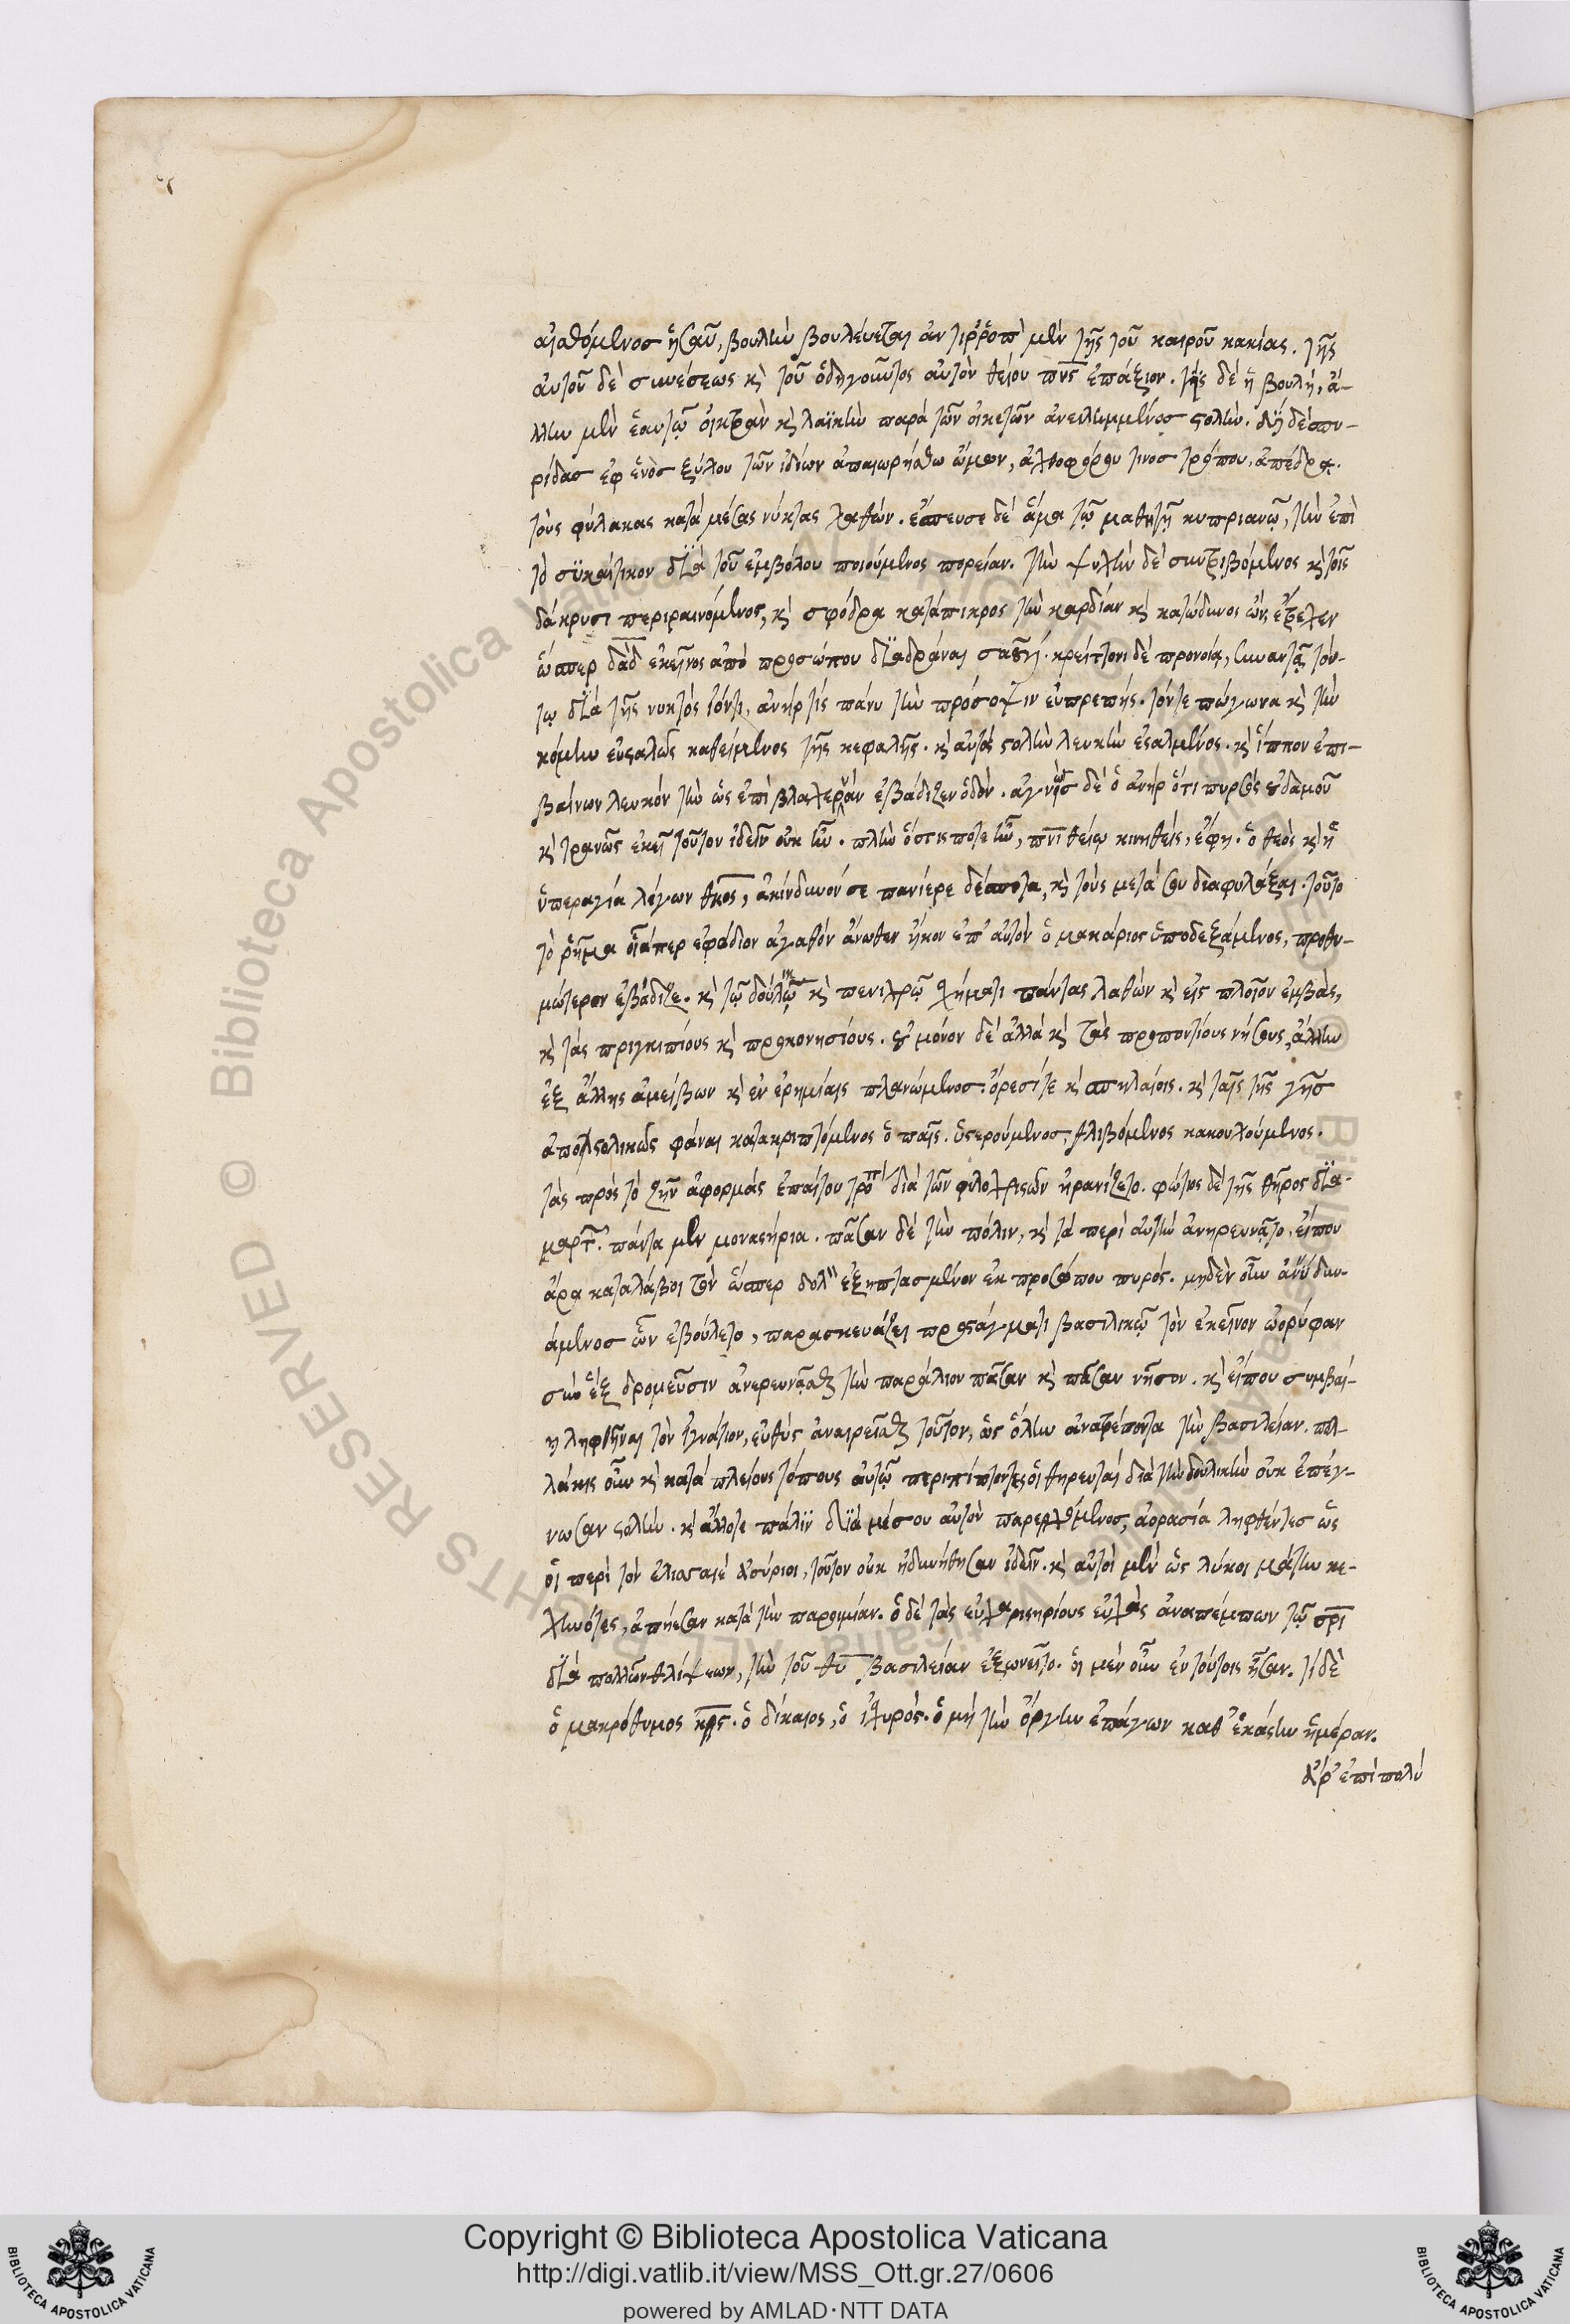 αἰσθόμενος ἧσαν, βουλὴν βουλεύεται ἀντίρροπ̀ μὲν τῆς τοῦ καιροῦ κακίας. τῆς
αὐτοῦ δὲ συνέσεως κ̀ τοῦ ὁδηγοῦντος αὐτὸν θείου πν̅ς ἐπάξιον. τίς δὲ ἡ βουλή, ἄ-
λλην μὲν ἑαυτῷ οἰκτρὰν κ̀ λαϊκὴν παρὰ τῶν οἰκετῶν ἀνειλημμένος στολὴν. δύο δὲ σπυ-
ρίδας ἐφ ἑνὸς ξύλου τῶν ἰδίων ἀπαιωρήσθω ὤμων, ἀχθοφόρου τινος τρόπου, ἀπέδρα.
τοὺς φύλακας κατὰ μέσας νύκτας λαθών. ἔσπευσε δὲ ἅμα τῷ μαθητῇ κυπριανῷ, τὴν ἐπὶ
τὸ συκαίτικον διὰ τοῦ ἐμβόλου ποιούμενος πορείαν. τὴν ψυχὴν δὲ συντριβόμενος κ̀ τοῖς
δάκρυσι περιραινόμενος, κ̀ σφόδρα κατάπικρος τὴν καρδίαν κ̀ κατώδυνος ὢν, ἔτρεχεν
ὥσπερ δα̅δ ἐκεῖνος ἀπὸ προσώπου διαδράναι σαούλ. κρείττονι δὲ προνοίᾳ, συναντᾷ τού-
τῳ διὰ τῆς νυκτὸς ἰόντι, ἀνήρ τις πάνυ τὴν πρόσοψιν εὐπρεπής. τόν τε πώγωνα κ̀ τὴν
κόμην εὐσταλῶς καθειμένος τῆς κεφαλῆς. κ̀ αὐτὸς στολὴν λευκὴν ἐσταλμένος. κ̀ ἵππον ἐπι-
βαίνων λευκὸν τὴν ὡς ἐπὶ βλαχερνὰν ἐβάδιζεν ὁδόν. ἁγνὸς δὲ ὁ ἀνὴρ ὅτι πυρσὸς οὐδαμοῦ
κ̀ τρανῶς ἐκεῖ τοῦτον ἰδεῖν οὐκ ἦν. πλὴν ὅστις ποτε ἦν, πν̅ι θείῳ κινηθεὶς, ἔφη. ὁ θεὸς κ̀ ἡ
ὑπεραγία λέγων θκ̅ος, ἀκίνδυνόν σε πανίερε δέσποτα, κ̀ τοὺς μετὰ σου διαφυλάξαι. τοῦτο
τὸ ῥῆμα οἷάπερ ἐφόδιον ἀγαθὸν ἄνωθεν ἧκον ἐπ' αὐτὸν ὁ μακάριος ὑποδεξάμενος, προθυ-
μότερον ἐβάδιζε. κ̀ τῷ δουλικῷ κ̀ πενιχρῷ σχήματι πάντας λαθὼν κ̀ εἰς πλοῖον ἐμβὰς,
κ̀ τὰς πριγκιπίους κ̀ προκονησίους. οὐ μόνον δὲ ἀλλὰ κ̀ τὰς προποντίους νήσους, ἄλλην
ἐξ ἄλλης ἀμείβων κ̀ ἐν ἐρημίαις πλανώμενος. ὄρεσί τε κ̀ σπηλαίοις. κ̀ ταῖς τῆς γῆς
ἀποστολικῶς φάναι κατακρυπτόμενος ὀπαῖς. ὑστερούμενος, θλιβόμενος κακουχούμενος.
τὰς πρὸς τὸ ζῆν ἀφορμὰς ἐπαίτου τρό^π διὰ τῶν φιλοχρίστων ἠρανίζετο. φώτιος δὲ τῆς θῆρος δια-
μαρτ. πάντα μὲν μοναστήρια. πᾶσαν δὲ τὴν πόλιν, κ̀ τὰ περὶ αὐτὴν ἀνηρευνᾶτο, εἴπου
ἄρα καταλάβοι τὸν ὥσπερ δολ ἐξηπτασμένον ἐκ προσώπου πυρός. μηδὲν οὖν ἀνύειν δυν-
άμενος ὧν ἐβούλετο, παρασκευάζει προστάγματι βασιλικῷ τὸν ἐκεῖνον ὠορύφαν
σὺν ἓξ δρομεῦσιν ἀνερευνᾶσθαι τὴν παράλιον πᾶσαν κ̀ πᾶσαν νῆσον. κ̀ εἴπου συμβαί-
η ληφθῆναι τὸν ἰγνάτιον, εὐθὺς ἀναιρεῖσθαι τοῦτον, ὡς ὅλην ἀνατρέποντα τὴν βασιλείαν. πολ-
λάκις οὖν κ̀ κατὰ πλείους τόπους αὐτῷ περιπίπτοντες οἱ θηρευταὶ διὰ τὴν δουλικὴν οὐκ ἐπέγ-
νωσαν στολὴν. κ̀ ἄλλοτε πάλιν διὰ μέσου αὐτὸν παρερχόμενος, ἀορασίᾳ ληφθέντες ὡς
οἱ περὶ τὸν ἐλισσαιὲ ἀσύριοι, τοῦτον οὐκ ἠδυνήθησαν ἰδεῖν. κ̀ αὐτοὶ μὲν ὡς λύκοι μάτην κε-
χηνότες, ἀπῄεσαν κατὰ τὴν παροιμίαν. ὁ δὲ τὰς εὐχαριστηρίους εὐχὰς ἀναπέμπων τῷ σρ̅ι
διὰ πολλῶν θλίψεων, τὴν τοῦ θυ̅ βασιλείαν ἐξωνεῖτο. οἱ μὲν οὖν ἐν τούτοις ἦσαν. τί δὲ
ὁ μακρόθυμος κρ̅ς. ὁ δίκαιος, ὁ ἰσχυρὸς. ὁ μὴ τὴν ὀργὴν ἐπάγων καθ' ἑκάστην ἡμέραν.
ἆρ' ἐπὶ πολὺ
Copyright © Biblioteca Apostolica Vaticana
http://digi.vatlib.it/view/MSS_Ott.gr.27/0606
powered by AMLAD·NTT DATA